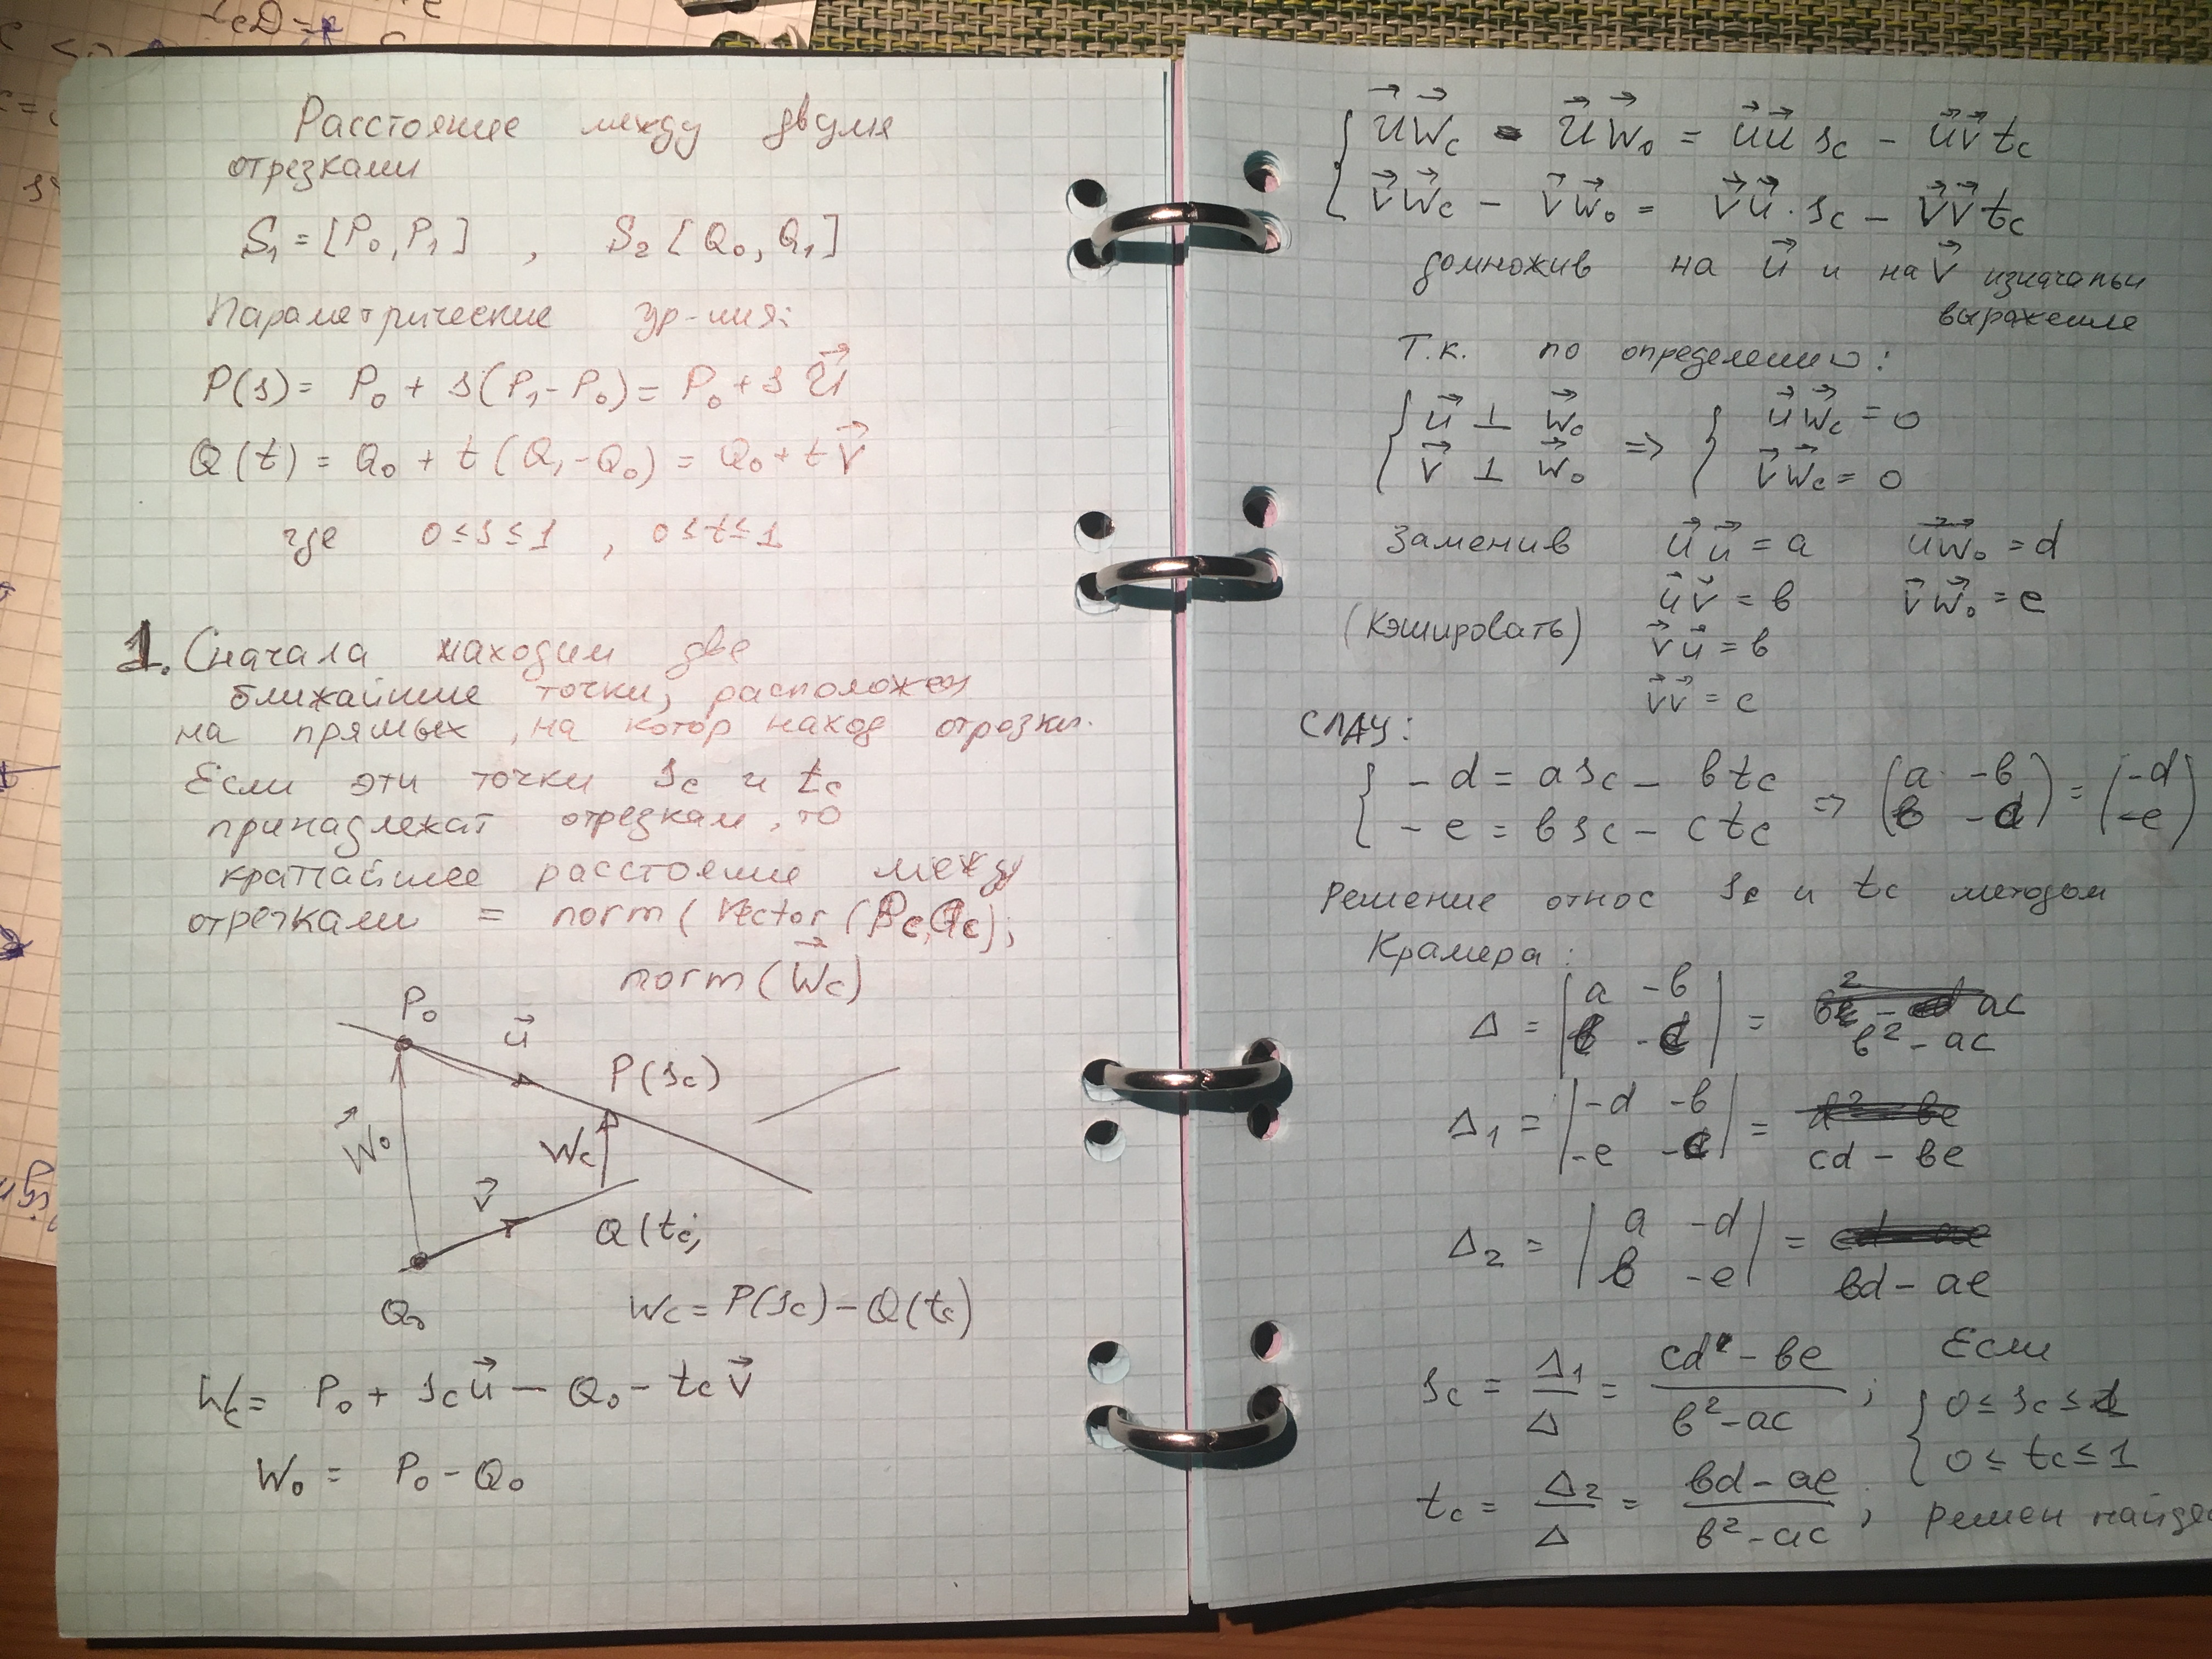 Расстояние между двумя
отрезками
S₁ = [P₀, P₁] , S₂ [Q₀, Q₁]
Параметрические ур-ния:
P(s) = P₀ + s(P₁ - P₀) = P₀ + s u⃗
Q(t) = Q₀ + t(Q₁ - Q₀) = Q₀ + t v⃗
где 0 ≤ s ≤ 1 , 0 ≤ t ≤ 1
1. Сначала находим две
ближайшие точки, располож
на прямых, на котор наход отрезки.
Если эти точки sc и tc
принадлежат отрезкам, то
кратчайшее расстояние между
отрезками = norm(Vector(Pc, Qc);
norm(W⃗c)
P₀
u⃗
P(sc)
W⃗₀
Wc
v⃗
Q(tc)
Q₀
Wc = P(sc) - Q(tc)
Wc = P₀ + sc u⃗ - Q₀ - tc v⃗
W₀ = P₀ - Q₀
{ u⃗W⃗c - u⃗W⃗₀ = u⃗u⃗ sc - u⃗v⃗ tc
{ v⃗W⃗c - v⃗W⃗₀ = v⃗u⃗ · sc - v⃗v⃗ tc
домножив на u⃗ и на v⃗ изначальн
выражение
Т.к. по определению:
{ u⃗ ⊥ W⃗₀ => { u⃗W⃗c = 0
{ v⃗ ⊥ W⃗₀ { v⃗W⃗c = 0
Заменив u⃗u⃗ = a u⃗W⃗₀ = d
u⃗v⃗ = b v⃗W⃗₀ = e
(кэшировать) v⃗u⃗ = b
v⃗v⃗ = c
СЛАУ:
{ -d = a sc - b tc => (a -b) = (-d)
{ -e = b sc - c tc (b -c) (-e)
Решение относ sc и tc методом
Крамера:
Δ = |a -b; b -c| = b² - ac
Δ₁ = |-d -b; -e -c| = cd - be
Δ₂ = |a -d; b -e| = bd - ae
sc = Δ₁/Δ = (cd - be)/(b² - ac) ; Если
{ 0 ≤ sc ≤ 1
{ 0 ≤ tc ≤ 1
tc = Δ₂/Δ = (bd - ae)/(b² - ac) , решен найде